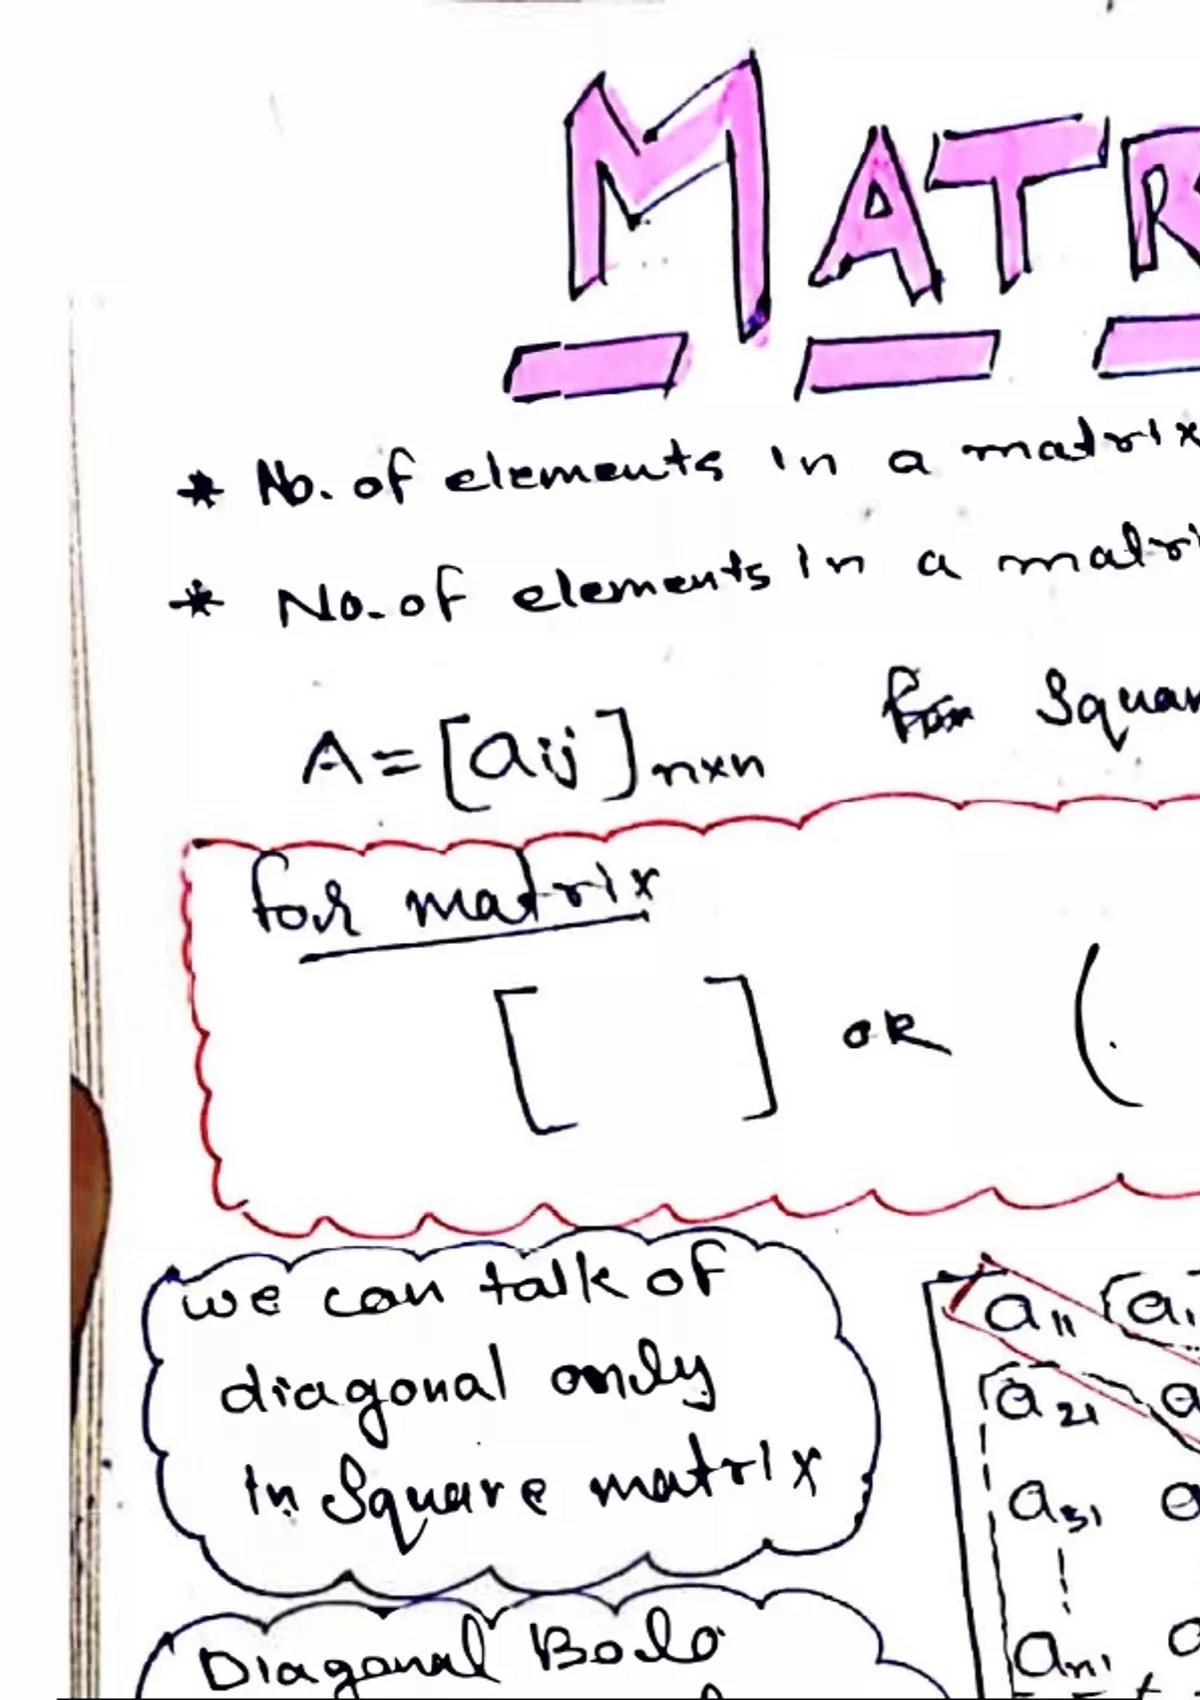 MATR
* No. of elements in a matrix
* No. of elements in a matri
A = [aij]nxn for Squar
for matrix
[ ] OR (
we can talk of
diagonal only
in Square matrix
a11 a1
a21 a
a31 a
an1 a
Diagonal